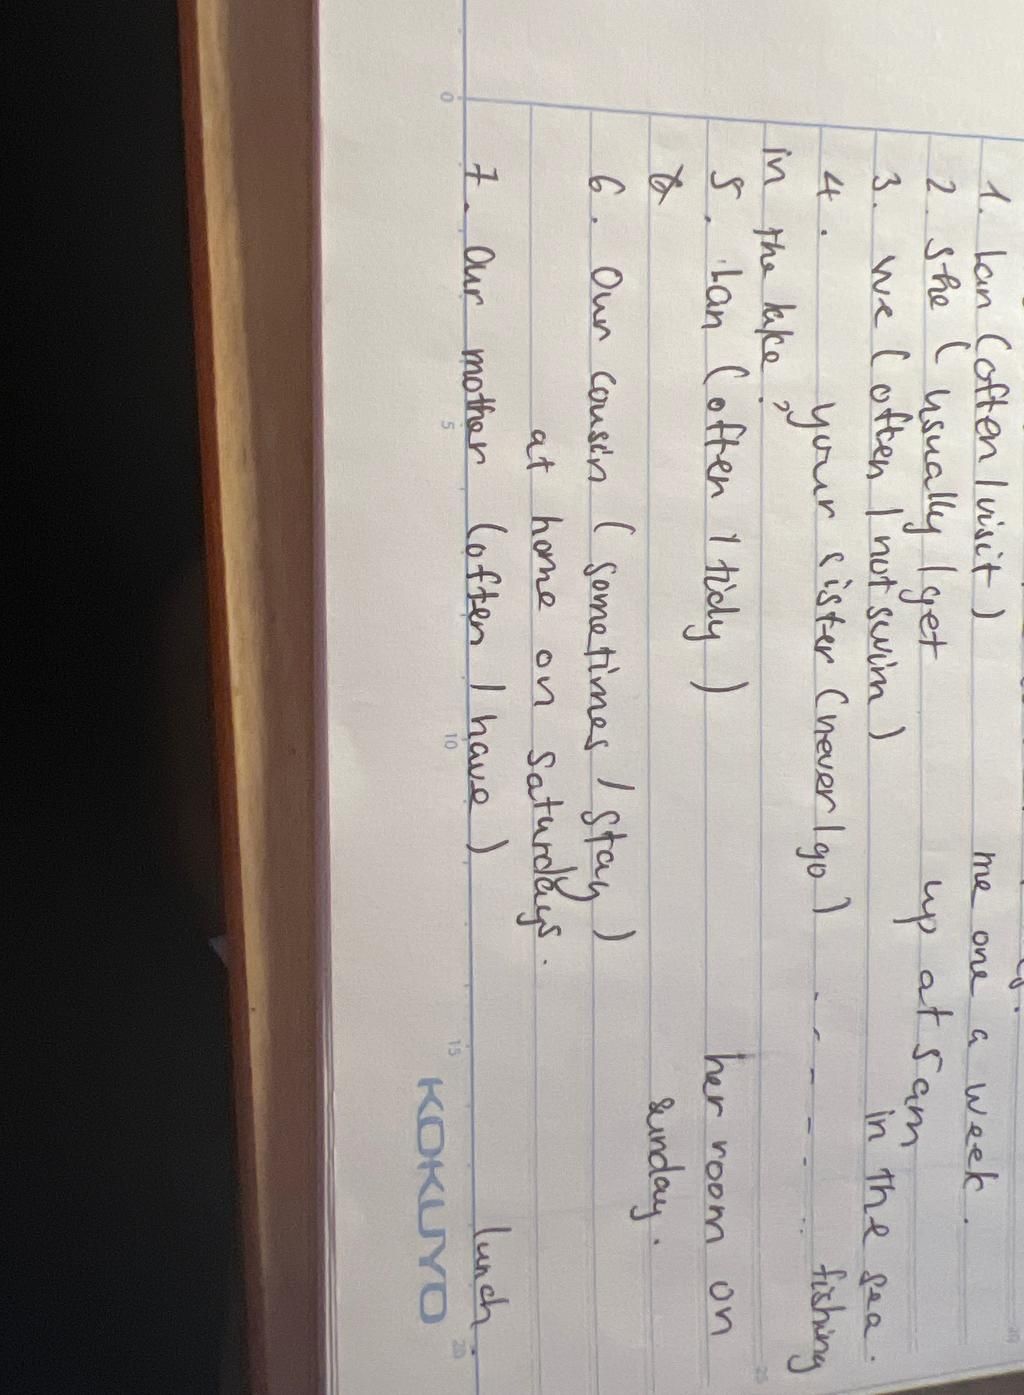 1. Lan (often / visit) me one a week.
2. she ( usually / get up at 5 am
3. we ( often / not swim ) in the sea.
4. your sister (never / go ) - - - - - .. fishing
in the lake,
5. Lan (often / tidy ) her room on
sunday.
6. Our cousin ( sometimes / stay )
at home on saturdays.
7. Our mother (often / have ) lunch.
0 5 10 15 20
25
KOKUYO